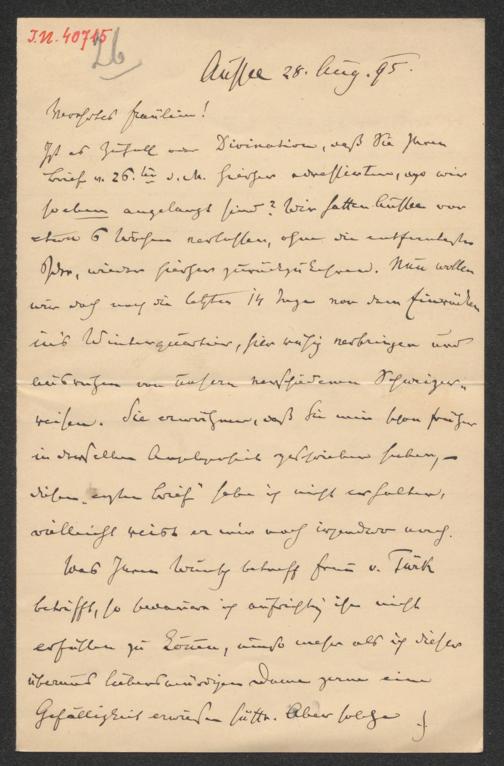 I.N. 40715
26
Aussee 28. Aug. 95.
Verehrtes Fräulein!
Ist es Zufall oder Divination, daß Sie Ihren
Brief v. 26. ten d. M. hierher adressierten, wo wir
soeben angelangt sind? Wir hatten Aussee vor
etwa 6 Wochen verlassen, ohne die entfernteste
Idee, wieder hierher zurückzukehren. Nun wollen
wir doch noch die letzten 14 Tage vor dem Einrücken
in's Winterquartier, hier ruhig verbringen und
ausruhen von unsern verschiedenen
Sie erwähnen, daß Sie mir schon früher
in derselben Angelegenheit geschrieben haben, –
diesen „ersten Brief" habe ich nicht erhalten,
vielleicht reist er mir noch irgendwo nach.
Was Ihren Wunsch betreff Frau v. Türk
betrifft, so bedauere ich aufrichtig ihn nicht
erfüllen zu können, umso mehr als ich dieser
überaus liebenswürdigen Dame gerne eine
Gefälligkeit erwiesen hätte. Aber solche